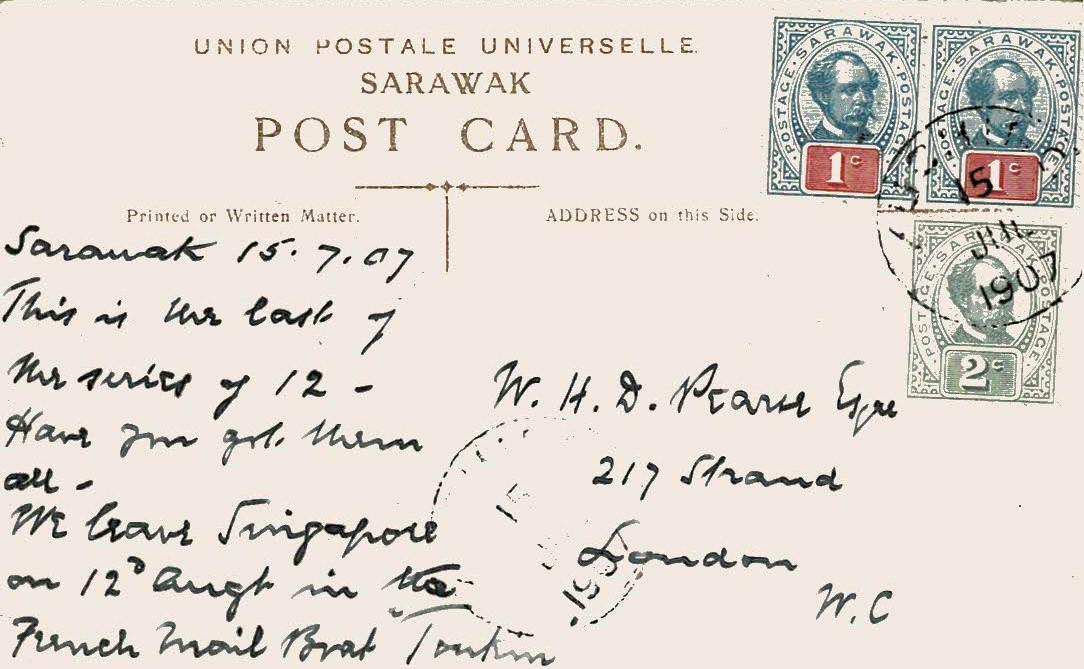 UNION POSTALE UNIVERSELLE.
SARAWAK
POST CARD.
Printed or Written Matter.
ADDRESS on this Side.
POSTAGE · SARAWAK · POSTAGE
1c
POSTAGE · SARAWAK · POSTAGE
1c
POSTAGE · SARAWAK · POSTAGE
2c
15
JUL
1907
Sarawak 15.7.07
This is the last of
the series of 12 -
Have you got them
all -
We leave Singapore
on 12 Augt in the
French Mail Boat "Tonkin
W. H. D. Pearse Esqre
217 Strand
London
W.C
15